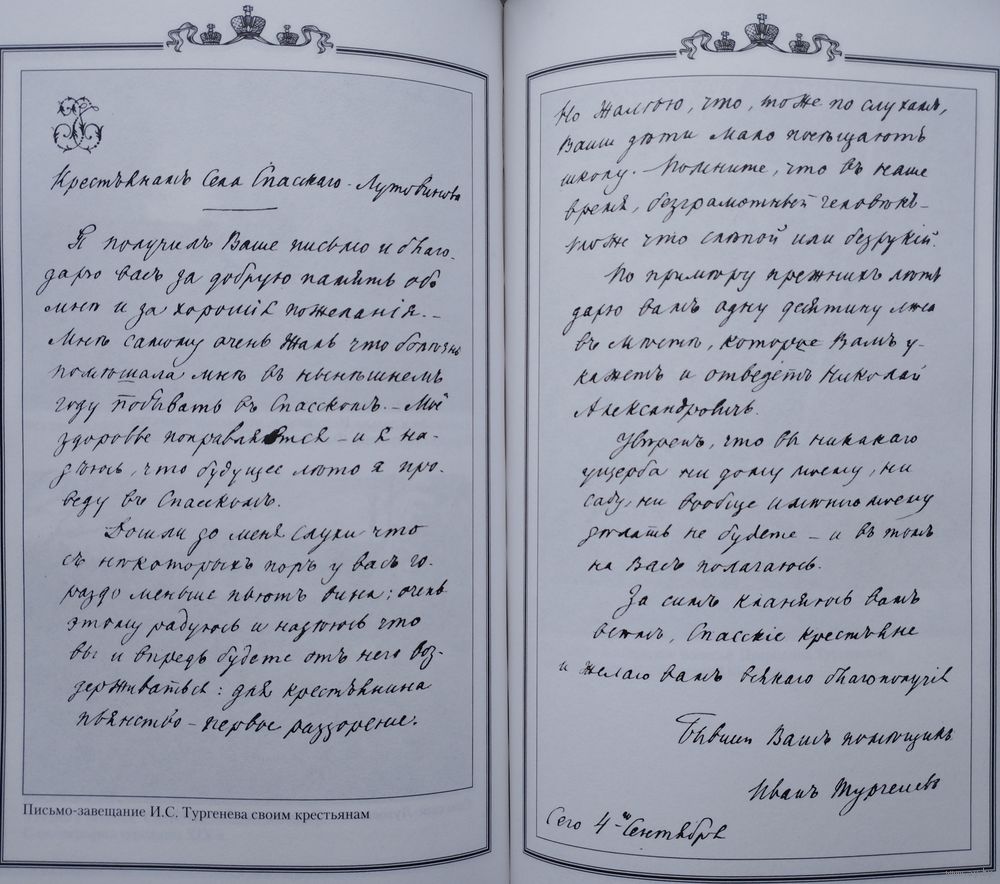 Крестьянамъ Села Спасскаго-Лутовинова
Я получилъ Ваше письмо и благо-
дарю васъ за добрую память обо
мнѣ и за хорошія пожеланія. –
Мнѣ самому очень жаль что болѣзнь
помѣшала мнѣ въ нынѣшнемъ
году побывать въ Спасскомъ. – Моё
здоровье поправляется – и я на-
дѣюсь, что будущее лѣто я про-
веду въ Спасскомъ.
Дошли до меня слухи что
съ нѣкоторыхъ поръ у васъ го-
раздо меньше пьютъ вина; очень
этому радуюсь и надѣюсь что
вы и впредь будете отъ него воз-
держиваться: для крестьянина
пьянство – первое раззорение.
Письмо-завещание И.С. Тургенева своим крестьянам
Но жалѣю, что, тоже по слухамъ,
Ваши дѣти мало посѣщаютъ
школу. Помните, что въ наше
время, безграмотный человѣкъ –
тоже что слѣпой или безрукій.
По примѣру прежнихъ лѣтъ
дарю вамъ одну десятину лѣса
въ мѣстѣ, которое Вамъ у-
кажетъ и отведетъ Николай
Александровичъ.
Увѣренъ, что вы никакаго
ущерба ни дому моему, ни
саду, ни вообще имѣнію моему
дѣлать не будете – и въ томъ
на Васъ полагаюсь.
За симъ кланяюсь вамъ
всѣмъ, Спасскіе крестьяне
и желаю вамъ всякаго благополучія
Бывшій Вашъ помѣщикъ
Иванъ Тургеневъ
Сего 4-го Сентября